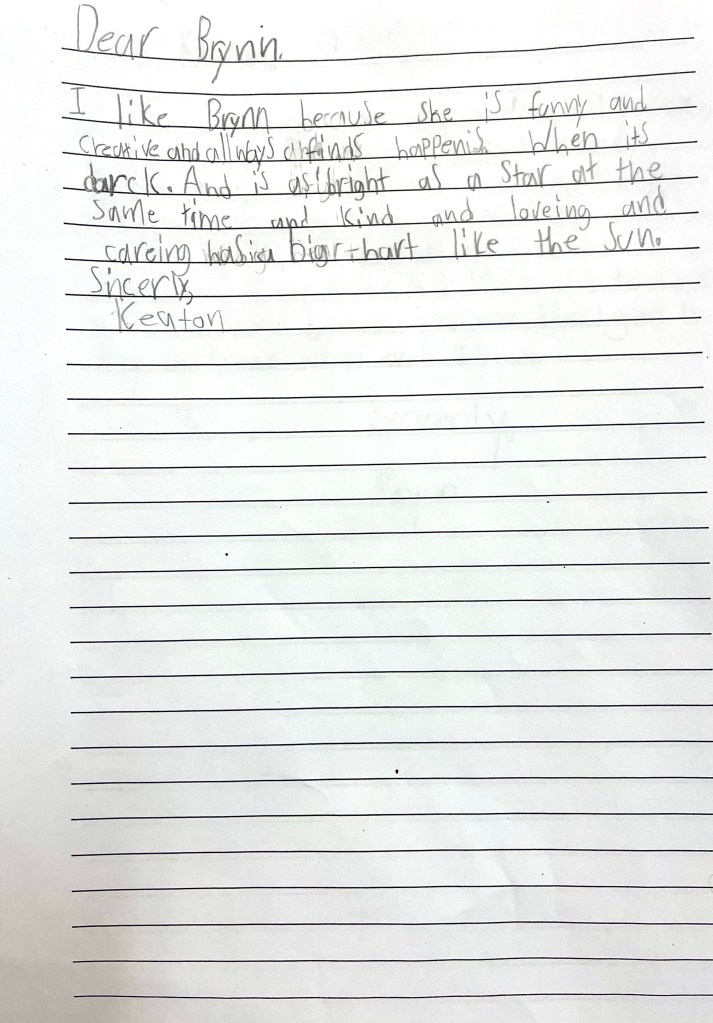 Dear Brynn.
I like Brynn because she is funny and
Creative and allways finds happenis. When its
darck. And is as bright as a Star at the
Same time and kind and loveing and
careing has a big hart like the Sun.
Sincerly,
Keaton